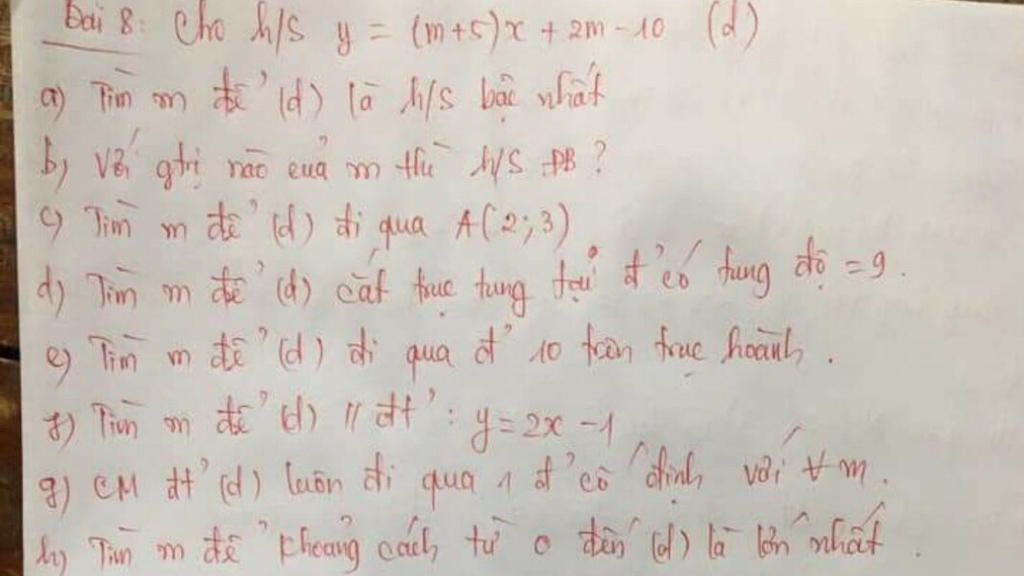 Bài 8: Cho h/s y = (m+5)x + 2m - 10 (d)
a) Tìm m để (d) là h/s bậc nhất
b) Với gtrị nào của m thì h/s ĐB ?
c) Tìm m để (d) đi qua A(2;3)
d) Tìm m để (d) cắt trục tung tại đ' có tung độ = 9.
e) Tìm m để (d) đi qua đ' 10 trên trục hoành.
f) Tìm m để (d) // đt' : y = 2x - 1
g) CM đt' (d) luôn đi qua 1 đ' cố định với ∀ m.
h) Tìm m để khoảng cách từ O đến (d) là lớn nhất.